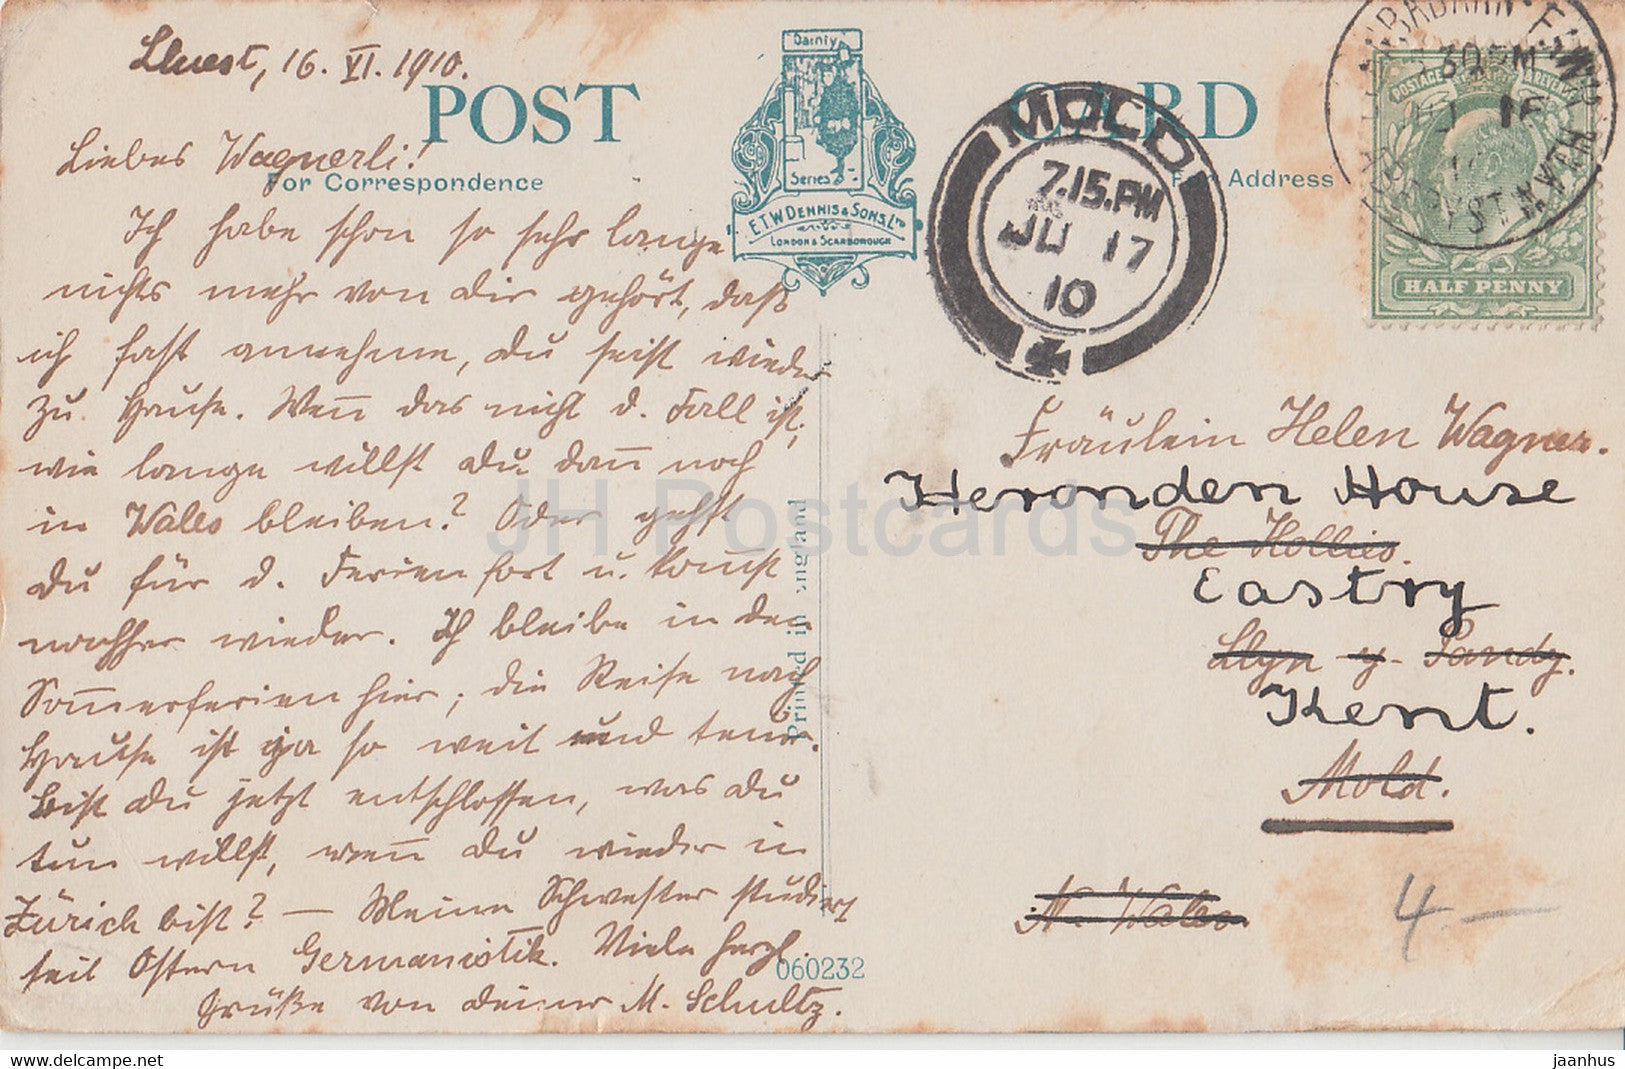 Lluest, 16. VI. 1910.
POST CARD
For Correspondence
For Address
Dainty
Series
E.T.W. DENNIS & SONS, LTD
LONDON & SCARBOROUGH
Liebes Wagnerli!
Ich habe schon so sehr lange
nichts mehr von dir gehört, daß
ich fast annehme, du seist wieder
zu Hause. Wenn das nicht d. Fall ist,
wie lange willst du dann noch
in Wales bleiben? Oder gehst
du für d. Ferien fort u. kommst
nachher wieder. Ich bleibe in den
Sommerferien hier; die Reise nach
Hause ist ja so weit und teuer.
Bist du jetzt entschlossen, was du
tun willst, wenn du wieder in
Zürich bist? — Meine Schwester studiert
seit Ostern Germanistik. Viele herzl.
Grüße von deiner M. Schultz.
Printed in England
060232
MOLD
7.15.PM
JU 17
10
ABERYSTWYTH
HALF PENNY
Fräulein Helen Wagner.
Heronden House
The Hollies.
Eastry
Llyn y Pandy.
Kent.
Mold.
N. Wales
4 —
JH Postcards
www.delcampe.net
jaanhus